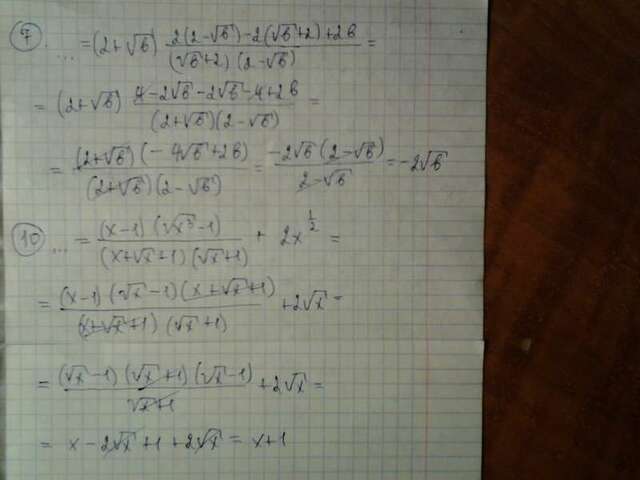 7. ... = (2+√b) (2(2-√b)-2(√b+2)+2b)/((√b+2)(2-√b)) =
= (2+√b) (4-2√b-2√b-4+2b)/((2+√b)(2-√b)) =
= ((2+√b)(-4√b+2b))/((2+√b)(2-√b)) = (-2√b(2-√b))/(2-√b) = -2√b
10 ... = ((x-1)(√x³-1))/((x+√x+1)(√x+1)) + 2x^(1/2) =
= ((x-1)(√x-1)(x+√x+1))/((x+√x+1)(√x+1)) + 2√x =
= ((√x-1)(√x+1)(√x-1))/(√x+1) + 2√x =
= x-2√x+1+2√x = x+1